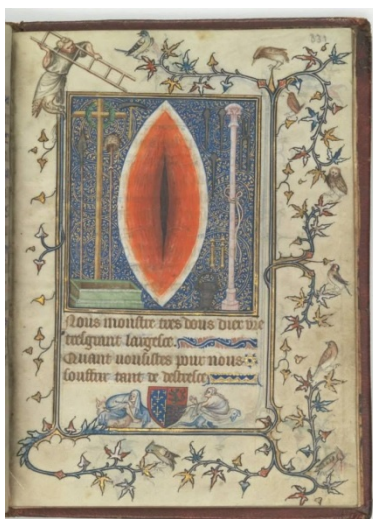 331
Nous monstre tres dous
tresgrant largesce.
Quant uousistes pour nous
souffrir tant de destresce